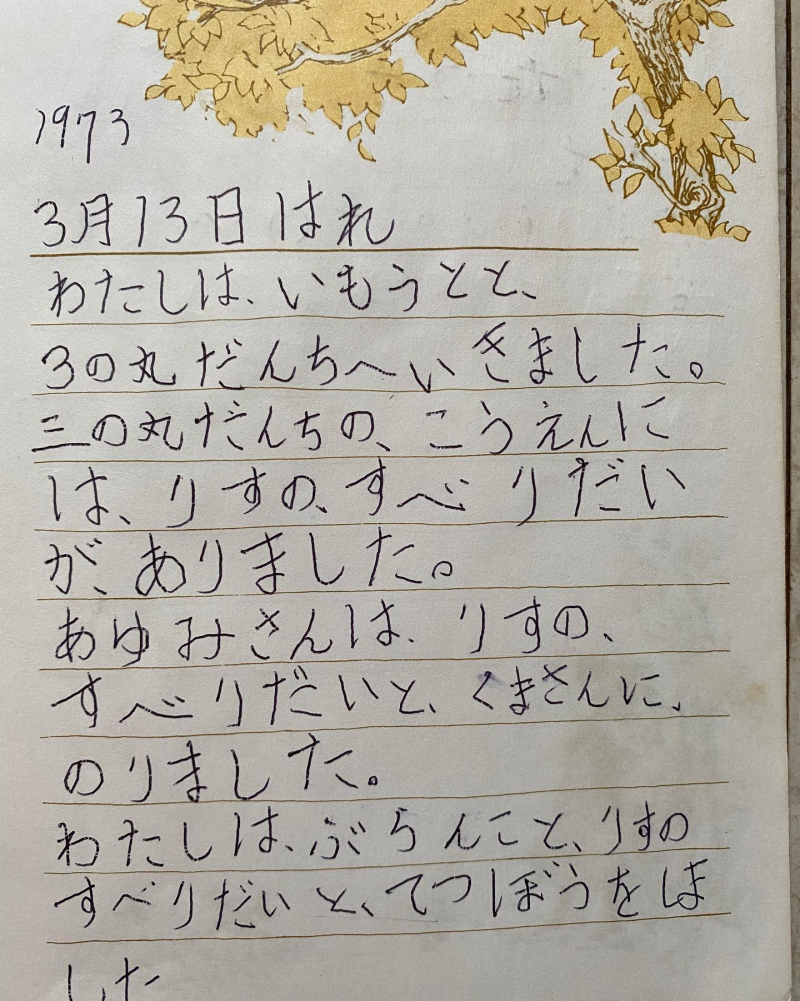 1973
3月13日はれ
わたしは、いもうとと、
3の丸だんちへいきました。
三の丸だんちの、こうえんに
は、りすの、すべりだい
が、ありました。
あゆみさんは、りすの、
すべりだいと、くまさんに、
のりました。
わたしは、ぶらんこと、りすの
すべりだいと、てつぼうをしま
した